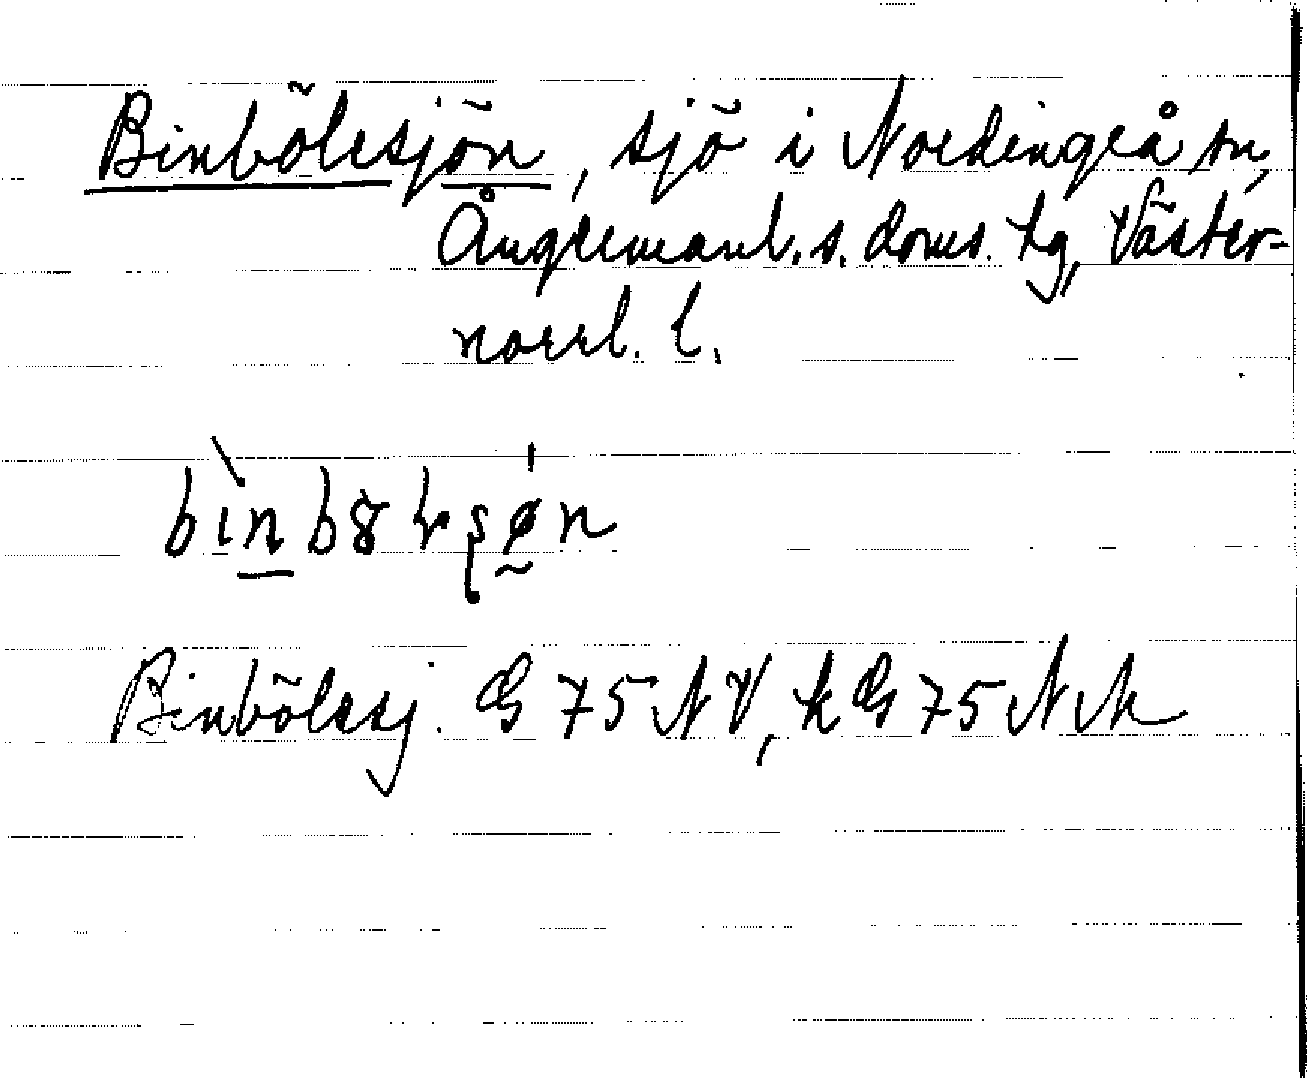 Binbölesjön, sjö i Nordingrå sn,
Ångermanl. s. doms. tg, Väster-
norrl. l.
Binbölesj. G 75 NV, k G 75 N